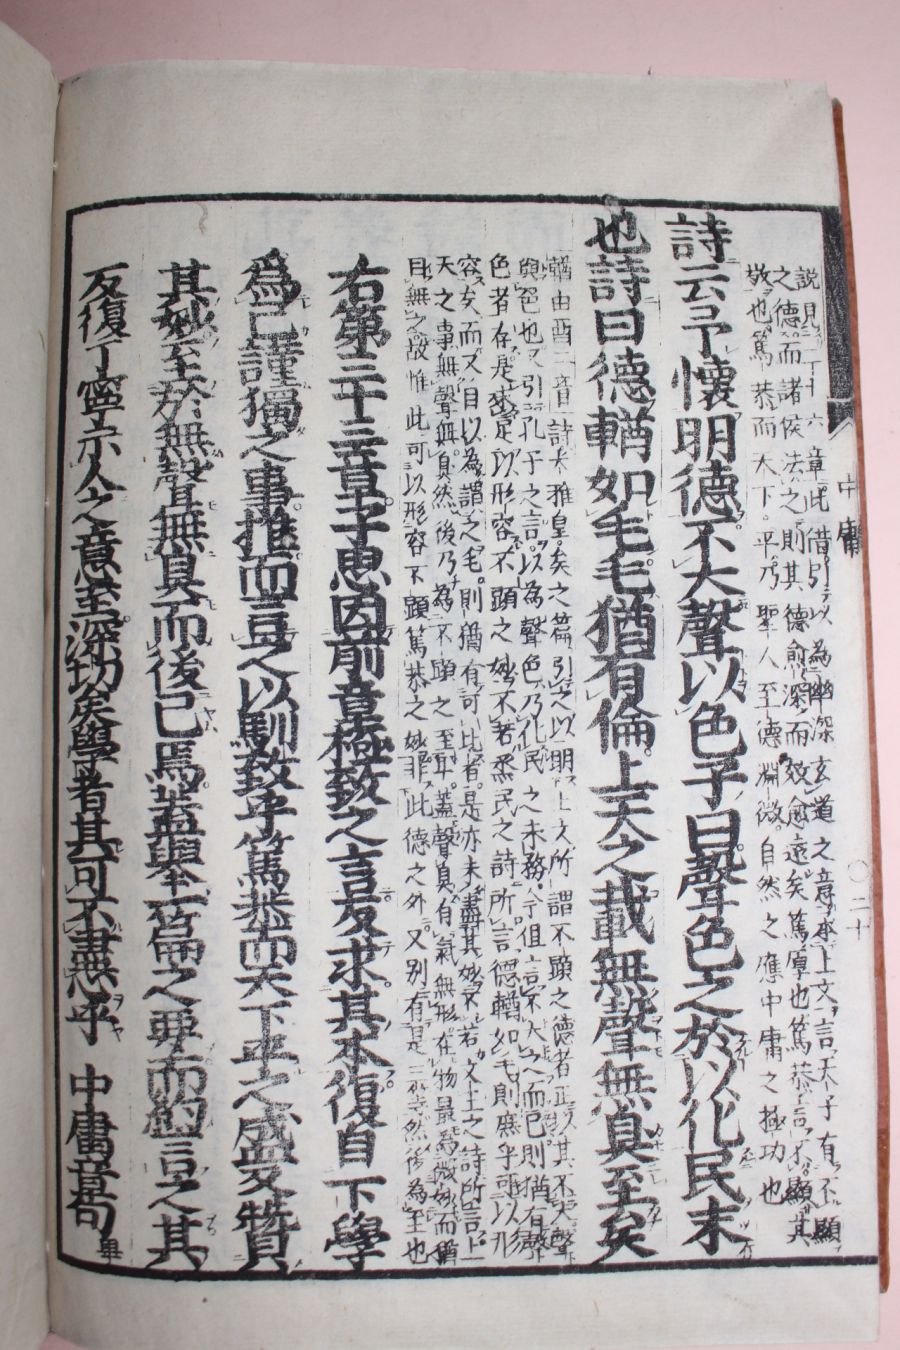 說見二十六章此借引以為幽深玄遠之意承上文言天子有不顯
之德而諸侯法之則其德愈深而效愈遠矣篤厚也篤恭言不顯其
敬也篤恭而天下平乃聖人至德淵微自然之應中庸之極功也
詩云予懷明德不大聲以色子曰聲色之於以化民末
也詩曰德輶如毛毛猶有倫上天之載無聲無臭至矣
輶由酉二音詩大雅皇矣之篇引之以明上文所謂不顯之德者正以其不大聲
與色也又引孔子之言以為聲色乃化民之末務今但言不大之而已則猶有聲
色者存是未足以形容不顯之妙不若烝民之詩所言德輶如毛則庶乎可以形
容矣而又自以為謂之毛則猶有可比者是亦未盡其妙不若文王之詩所言上
天之事無聲無臭然後乃為不顯之至耳蓋聲臭有氣無形在物最為微妙而猶
曰無之故惟此可以形容不顯篤恭之妙非此德之外又別有是三等然後為至也
右第三十三章子思因前章極致之言反求其本復自下學
為己謹獨之事推而言之以馴致乎篤恭而天下平之盛又贊
其妙至於無聲無臭而後已焉蓋舉一篇之要而約言之其
反復丁寧示人之意至深切矣學者其可不盡心乎 中庸章句 畢
中庸 〇二十